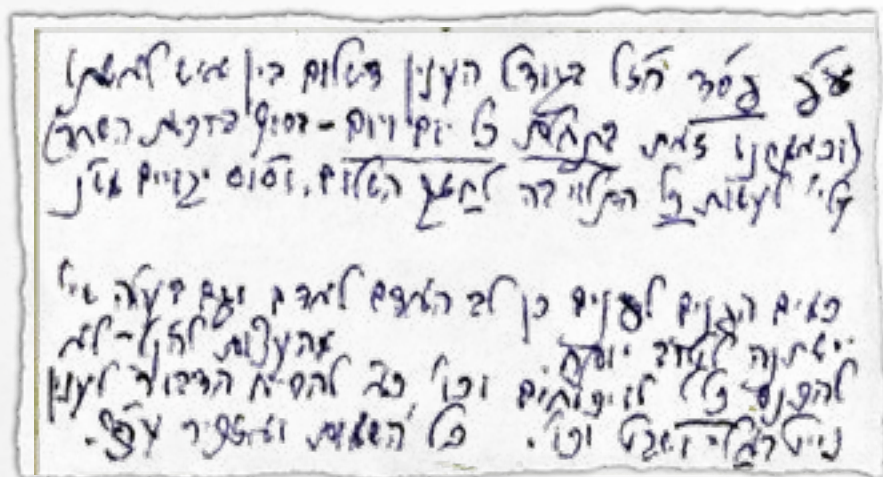 ע"ד פס"ד חז"ל בגודל הענין דשלום בין איש לאשתו
(וכמאמרנו זאת בתחלת כל יום ויום - בסוף ברכות השחר)
עלי' לעשות כל התלוי בה למען השלום. וסוס יבויים
כמים הפנים לפנים כן לב האדם לאדם וגם בעלה שי'
ישתנה לטוב יותר. מהעצות להנ"ל - לא
להכנס כלל לויכוחים וכו' כ"א להסיח הדיבור לענין
נייטראלי ושבט וכו'. כל השמות ואזכיר עה"צ.